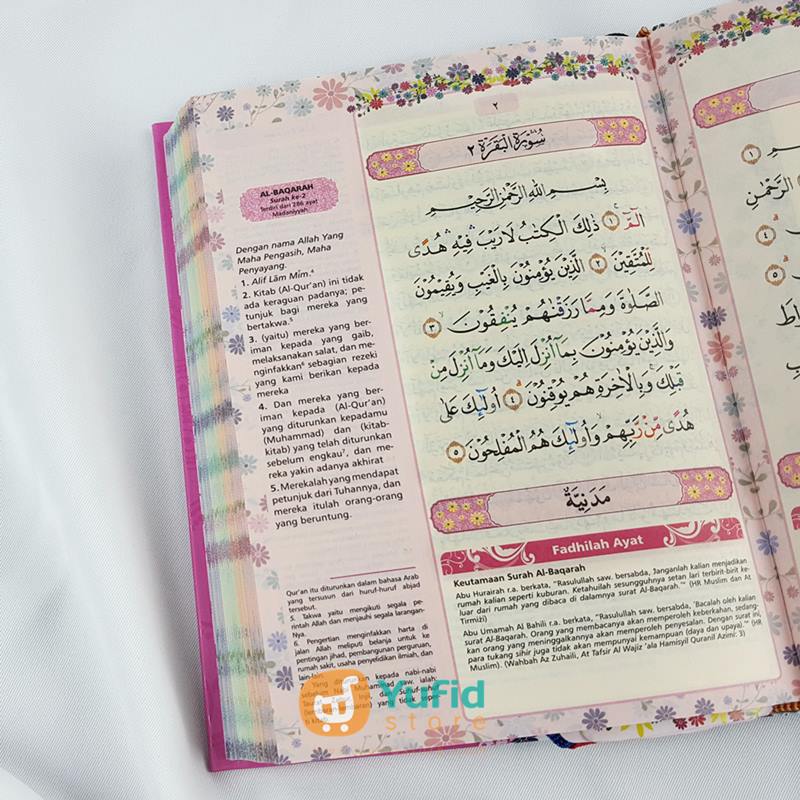 ٢
سُوْرَةُ الْبَقَرَةِ ٢
بِسْمِ اللّٰهِ الرَّحْمٰنِ الرَّحِيْمِ
الۤمّۤ ۚ ١ ذٰلِكَ الْكِتٰبُ لَا رَيْبَ ۛ فِيْهِ ۛ هُدًى
لِّلْمُتَّقِيْنَۙ ٢ الَّذِيْنَ يُؤْمِنُوْنَ بِالْغَيْبِ وَيُقِيْمُوْنَ
الصَّلٰوةَ وَمِمَّا رَزَقْنٰهُمْ يُنْفِقُوْنَ ۙ ٣
وَالَّذِيْنَ يُؤْمِنُوْنَ بِمَآ اُنْزِلَ اِلَيْكَ وَمَآ اُنْزِلَ مِنْ
قَبْلِكَ ۚ وَبِالْاٰخِرَةِ هُمْ يُوْقِنُوْنَۗ ٤ اُولٰۤىِٕكَ عَلٰى
هُدًى مِّنْ رَّبِّهِمْ ۙ وَاُولٰۤىِٕكَ هُمُ الْمُفْلِحُوْنَ ٥
مَدَنِيَّةٌ
AL-BAQARAH
Surah ke-2
Terdiri dari 286 ayat
Madaniyyah
Dengan nama Allah Yang
Maha Pengasih, Maha
Penyayang.
1. Alif Lām Mīm.⁴
2. Kitab (Al-Qur'an) ini tidak
ada keraguan padanya; pe-
tunjuk bagi mereka yang
bertakwa.⁵
3. (yaitu) mereka yang ber-
iman kepada yang gaib,
melaksanakan salat, dan me-
nginfakkan⁶ sebagian rezeki
yang kami berikan kepada
mereka
4. Dan mereka yang ber-
iman kepada (Al-Qur'an)
yang diturunkan kepadamu
(Muhammad) dan (kitab-
kitab) yang telah diturunkan
sebelum engkau⁷, dan me-
reka yakin adanya akhirat
5. Merekalah yang mendapat
petunjuk dari Tuhannya, dan
mereka itulah orang-orang
yang beruntung.
Qur'an itu diturunkan dalam bahasa Arab
yang tersusun dari huruf-huruf abjad
tersebut.
5. Takwa yaitu mengikuti segala pe-
rintah Allah dan menjauhi segala larangan-
Nya.
6. Pengertian menginfakkan harta di
jalan Allah meliputi belanja untuk ke-
pentingan jihad, pembangunan perguruan,
rumah sakit, usaha penyelidikan ilmiah, dan
lain-lain
Fadhilah Ayat
Keutamaan Surah Al-Baqarah
Abu Hurairah r.a. berkata, "Rasulullah saw. bersabda, Janganlah kalian menjadikan
rumah kalian seperti kuburan. Ketahuilah sesungguhnya setan lari terbirit-birit ke-
luar dari rumah yang dibaca di dalamnya surat Al-Baqarah.'" (HR Muslim dan At
Tirmizi)
Abu Umamah Al Bahili r.a. berkata, "Rasulullah saw. bersabda, 'Bacalah oleh kalian
surat Al-Baqarah. Orang yang membacanya akan memperoleh keberkahan, sedang-
kan orang yang meninggalkannya akan memperoleh penyesalan. Dengan surat ini,
para tukang sihir juga tidak akan mempunyai kemampuan (daya dan upaya).'" (HR
Muslim). (Wahbah Az Zuhaili, At Tafsir Al Wajiz 'ala Hamisyil Quranil Azimi: 3)
Yufid
store